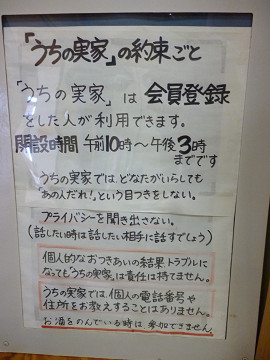 「うちの実家」の約束ごと
「うちの実家」は 会員登録
をした人が利用できます。
開設時間 午前10時〜午後3時
までです
うちの実家ではどなたがいらしても
「あの人だれ！」という目つきをしない。
プライバシーを聞き出さない。
(話したい時は話したい相手に話すでしょう)
個人的なおつきあいの結果トラブルに
なっても「うちの実家」は責任は持てません。
うちの実家では、個人の電話番号や
住所をお教えすることはありません。
お酒をのんでいる時は、参加できません。